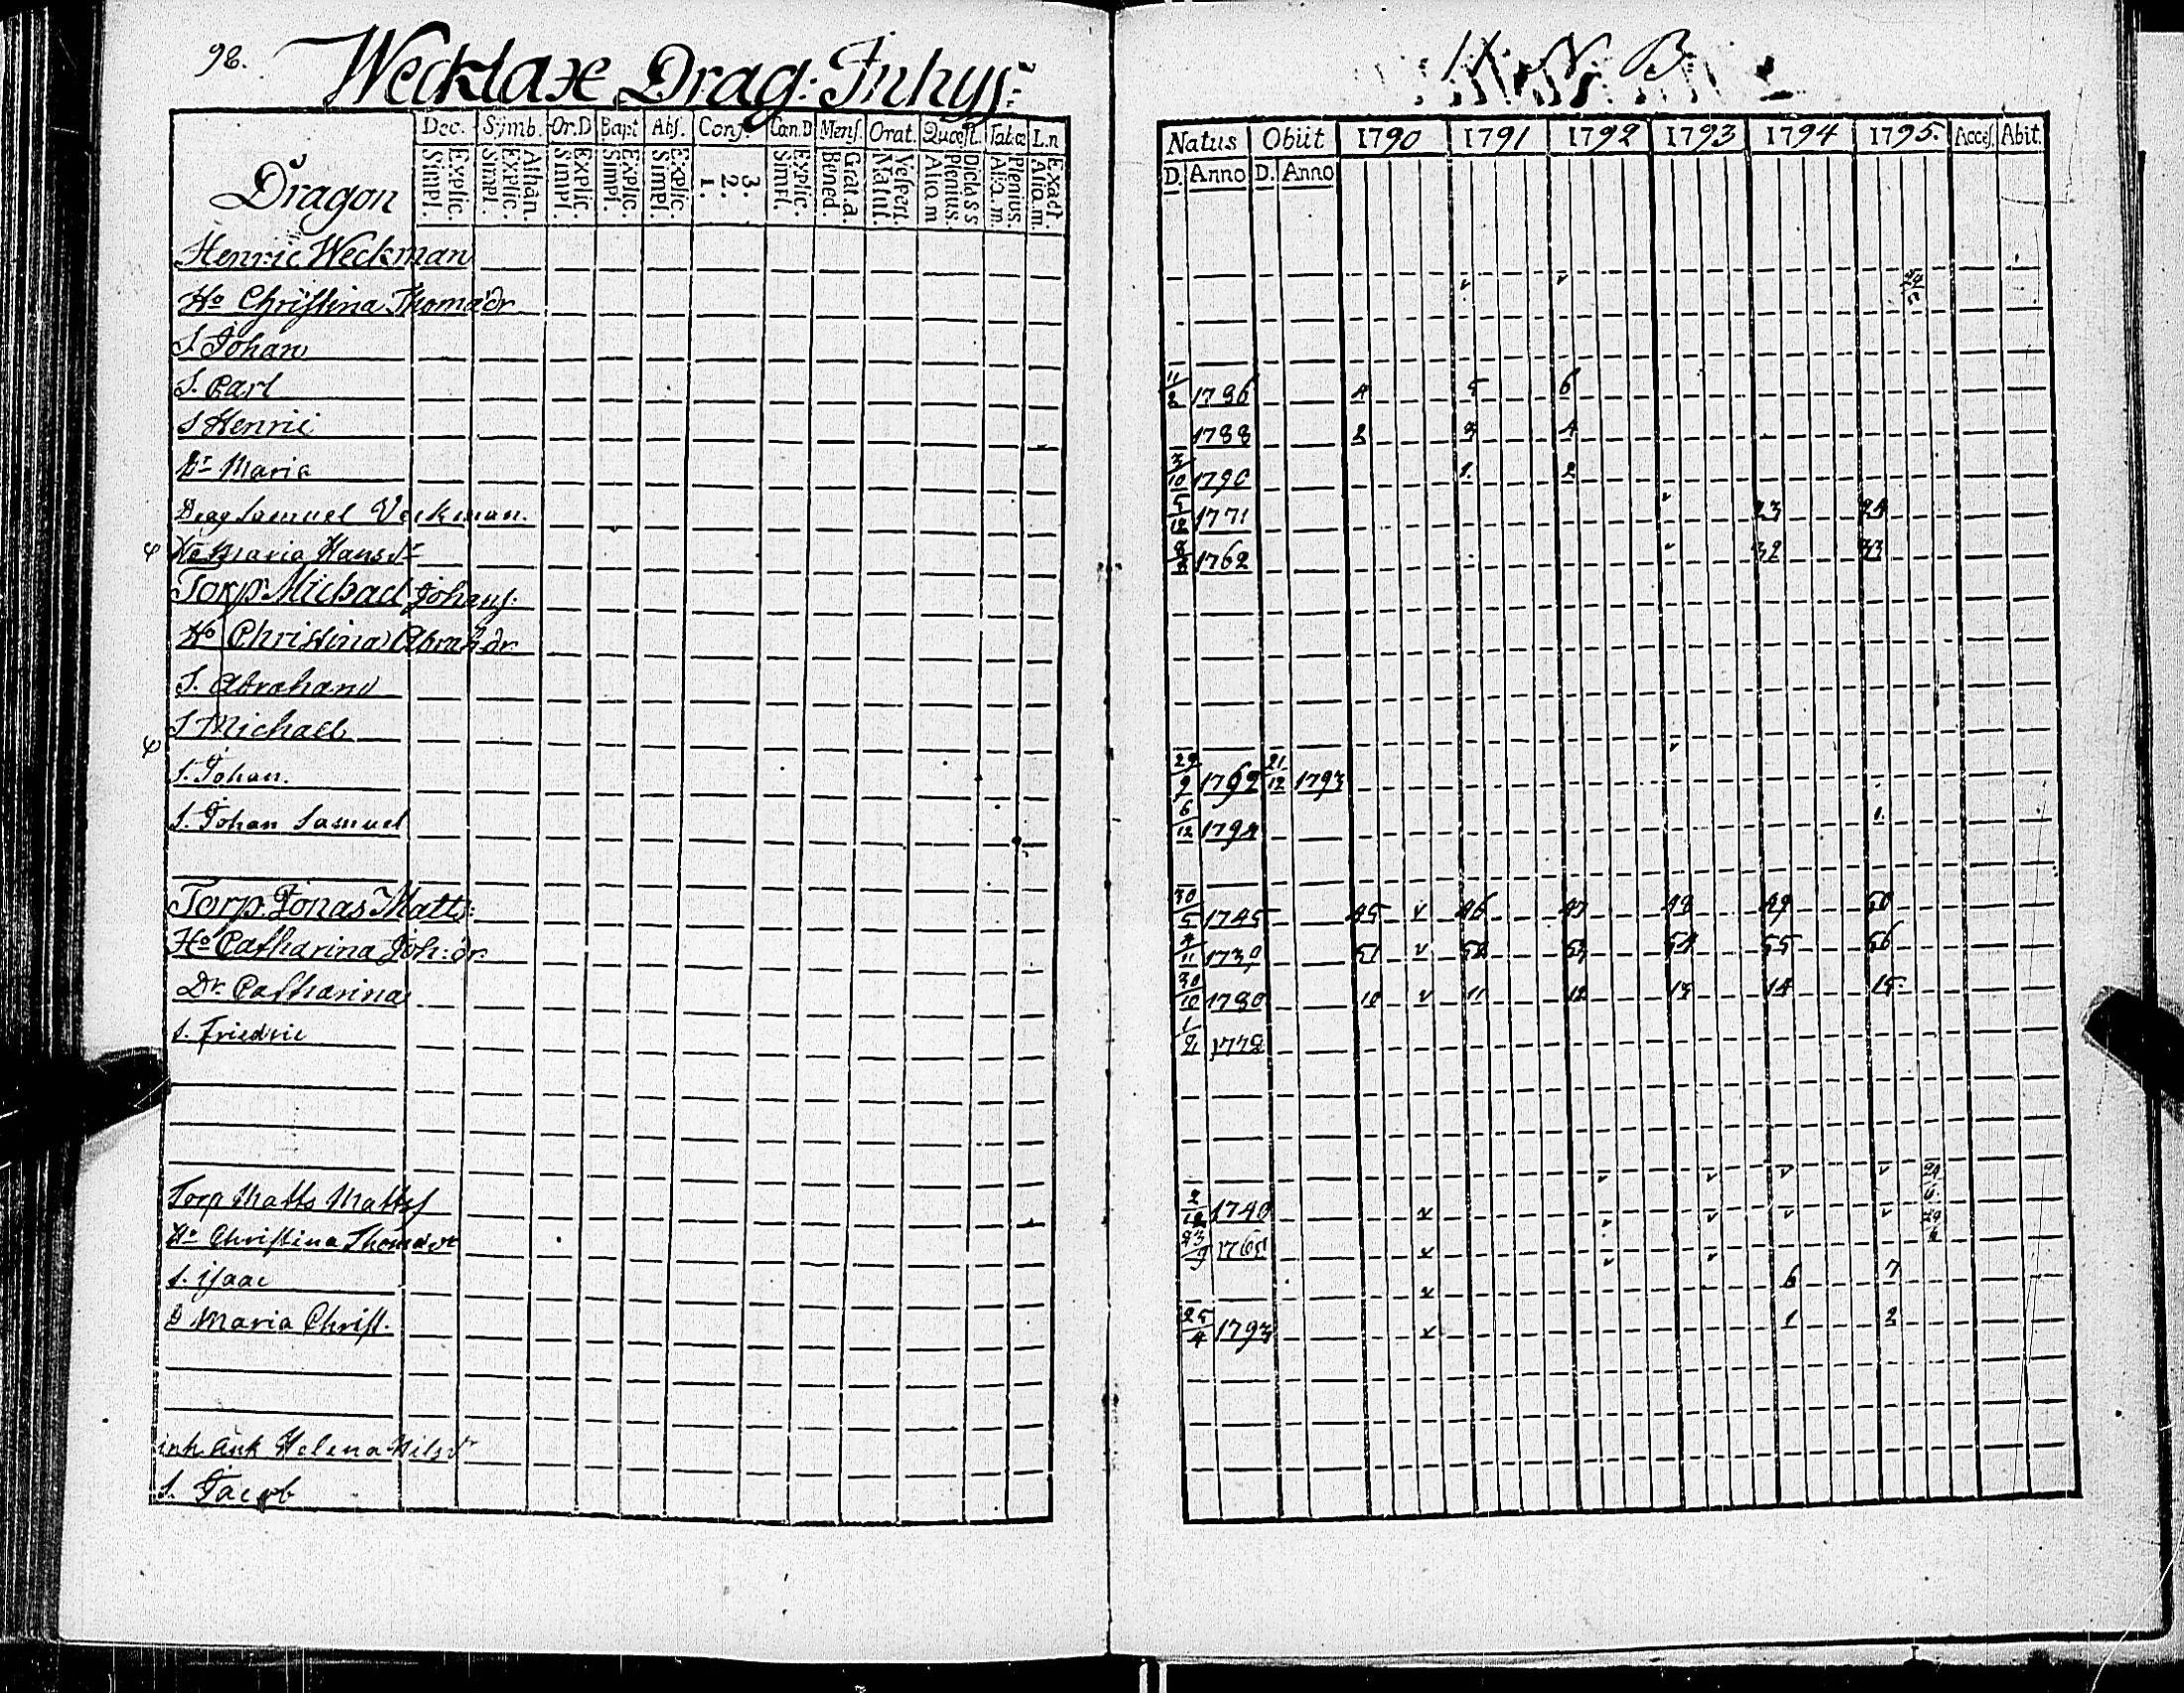 98. Wecklax Drag: Inhys:
Dec. Symb. Or.D Bapt Abs. Conf. Can.D Mens. Orat. Quæst. Tabcæ L.n
Simpl. Explic. Simpl. Explic. Athan. Simpl. Explic. Simpl. Explic. Simpl. Explic. 1. 2. 3. Simpl. Explic. Bened. Grat.a Matut. Vespert. Aliq.m Plenius. Dicta s s Aliq.m Plenius. Aliq.m. Exact
Natus Obiit 1790 1791 1792 1793 1794 1795. Acces. Abit.
D. Anno D. Anno
Dragon
Henric Weckman
Ho Christina Thomædr
S. Johan
S. Carl 11/2 1786 4 5 6
S Henric 1788 2 3 4
Dr Maria 3/10 1790 1. 2
Drag Samuel Veckman. 5/12 1771 23 24
Ho Maria Hansdr 1762 32 33
Torp. Michael Johans:
Ho Christina Abrah dr
S. Abraham
S Michael
S. Johan. 29/9 1792 21/12 1793
S. Johan Samuel 6/12 1794 1.
Torp. Jonas Matts: 30/5 1745 45 v 46 47 48 49 50
Ho Catharina Joh:dr 4/11 1739 51 v 52 53 54 55 56
Dr. Catharina 30/10 1780 10 v 11 12 13 14 15
S. Friedric 1/2 1772
Torp Matts Mattss 2/12 1740
Ho Christina Thomædr 23/9
S. Isaac 6 7
D Maria Christ. 25/4 1793 1 2
inh. Enk Helena Nilsdr
S. Jacob